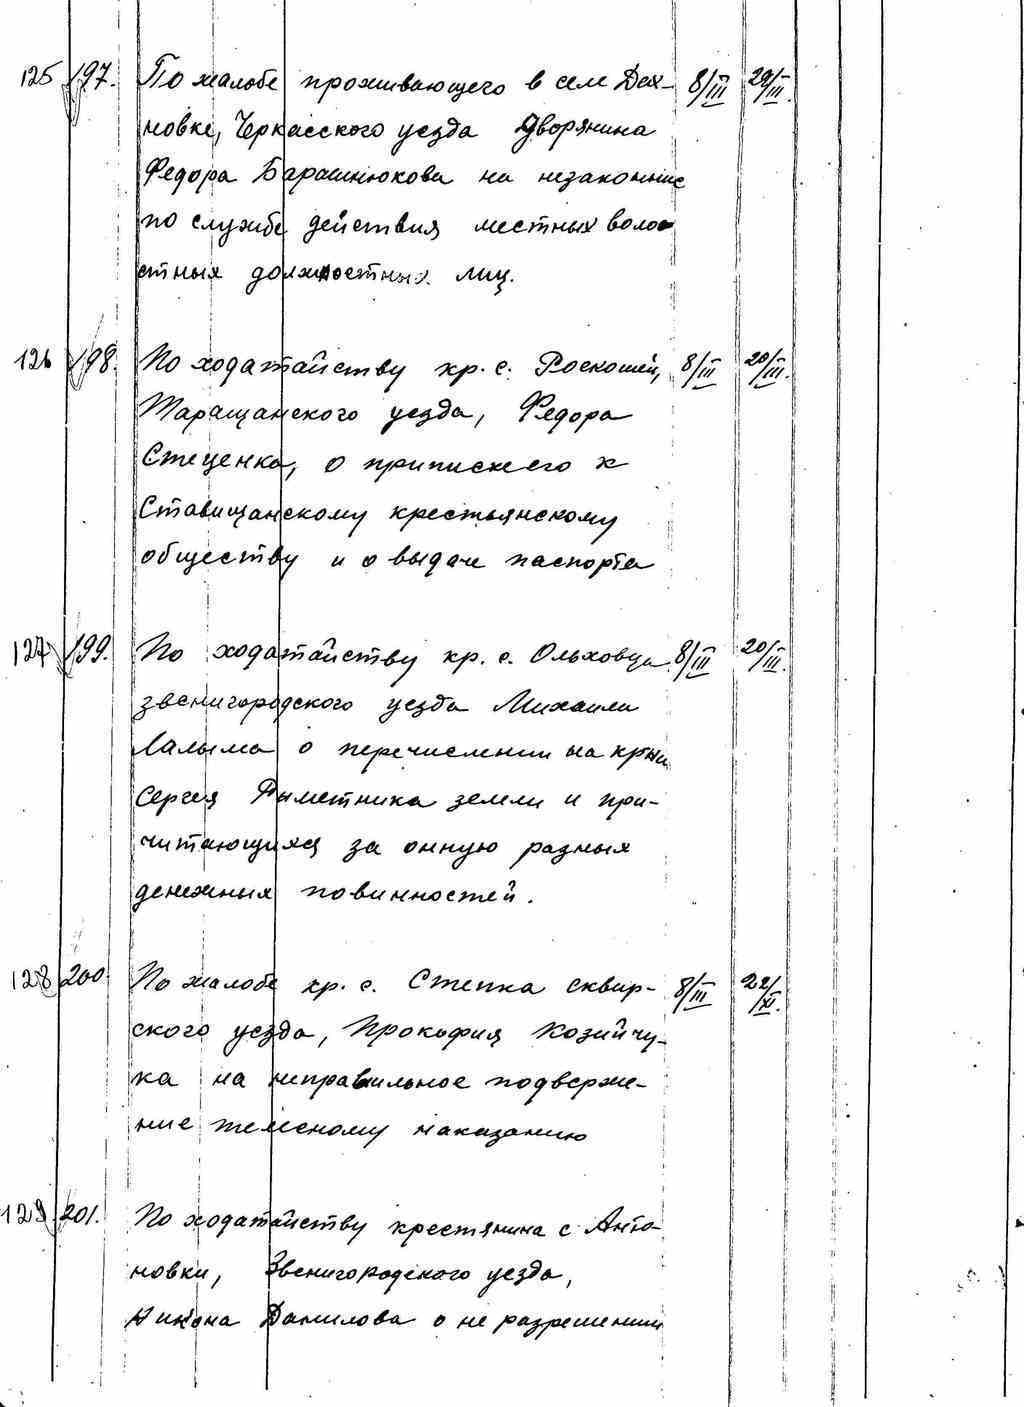 125 197. По жалобе проживающего в селе Дах- 8/III 29/III.
новке, Черкасского уезда Дворянина
Федора Барашнюкова на незаконные
по службе действия местных воло
стных должностных лиц.
126 198. По ходатайству кр. с. Роскошей, 8/III 20/III.
Таращанского уезда, Федора
Стеценко, о приписке его к
Ставищанскому крестьянскому
обществу и о выдаче паспорта
127 199. По ходатайству кр. с. Ольховца 8/III 20/III.
звенигородского уезда Михаила
о перечислении на
Сергея земли и при-
читающихся за онную разных
денежных повинностей.
128 200. По жалобе кр. с. Степка сквир- 8/III 22/XI.
ского уезда, Прокофия Козийчу-
ка на неправильное подверже-
ние телесному наказанию
129 201. По ходатайству крестянина с Анто
новки, Звенигородского уезда,
Никона Данилова о не разрешении